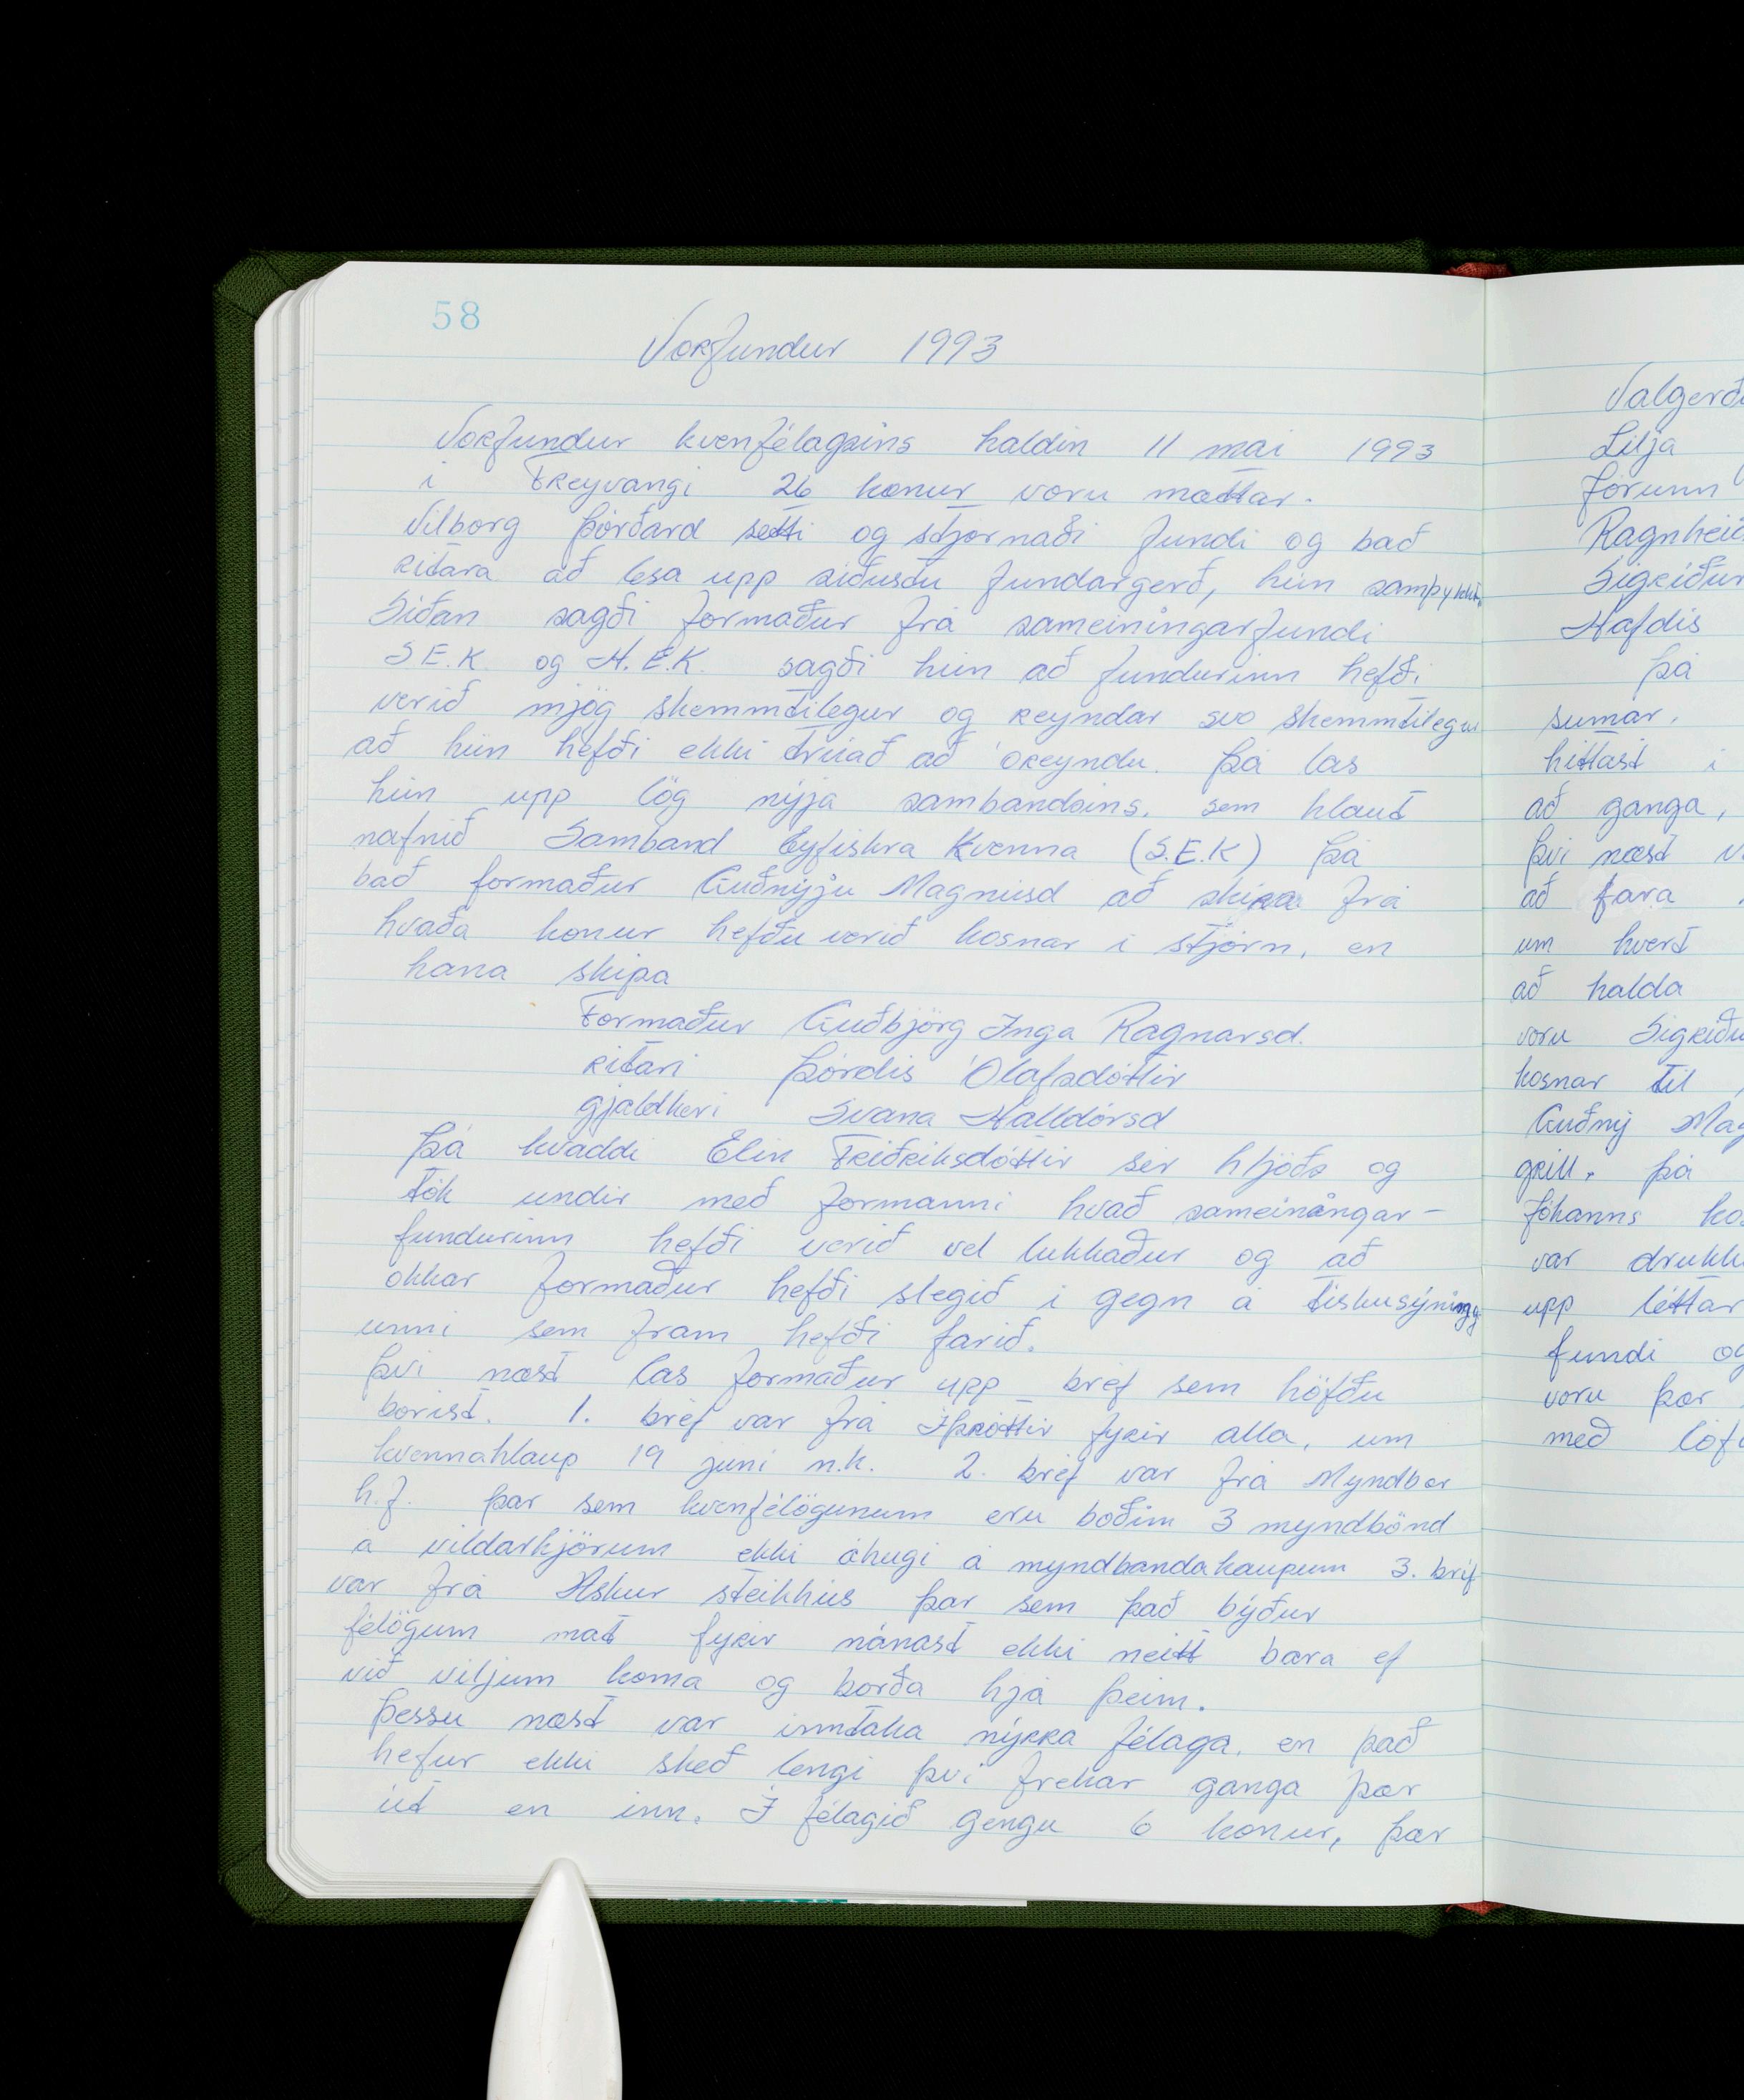 58
Vorfundur 1993
Vorfundur kvenfélagsins haldin 11 mai 1993
i Freyvangi 26 konur voru mættar.
Vilborg Þórðard setti og stjórnaði fundi og bað
ritara að lesa upp síðustu fundargerð, hún samþykkt.
Síðan sagði formaður frá sameiningarfundi
S.E.K. og H.E.K. sagði hún að fundurinn hefði
verið mjög skemmtilegur og reyndar svo skemmtilegur
að hún hefði ekki trúað að óreyndu. Þá las
hún upp lög nýja sambandsins. sem hlaut
nafnið Samband Eyfiskra Kvenna (S.E.K) Þá
bað formaður Guðnýju Magnúsd að skýra frá
hvaða konur hefðu verið kosnar í stjórn, en
hana skipa
Formaður Guðbjörg Inga Ragnarsd.
ritari Þórdís Ólafsdóttir
gjaldkeri Svana Halldórsd
Þá kvaddi Elín Friðriksdóttir sér hljóðs og
tók undir með formanni hvað sameiningar-
fundurinn hefði verið vel lukkaður og að
okkar formaður hefði slegið í gegn á tískusýning
unni sem fram hefði farið.
Því næst las formaður upp bréf sem höfðu
borist. 1. bréf var frá Íþróttir fyrir alla, um
kvennahlaup 19 júní n.k. 2. bréf var frá Myndbær
h.f. þar sem kvenfélögunum eru boðin 3 myndbönd
á vildarkjörum ekki áhugi á myndbandakaupum 3. bréf
var frá Askur steikhús þar sem það býður
félögum mat fyrir nánast ekki neitt bara ef
við viljum koma og borða hjá þeim.
Þessu næst var inntaka nýrra félaga, en það
hefur ekki skeð lengi því frekar ganga þær
út en inn. Í félagið gengu 6 konur, þær
Valgerðu
Lilja
Jórunn
Ragnheið
Sigríður
Hafdís
Þá
sumar.
hittast i
að ganga,
Því næst v
að fara
um hvert
að halda
voru Sigríðu
kosnar til
Guðný Mag
grill. Þá
Jóhanns kos
var drukk
upp léttar
fundi og
voru þær
með lófa